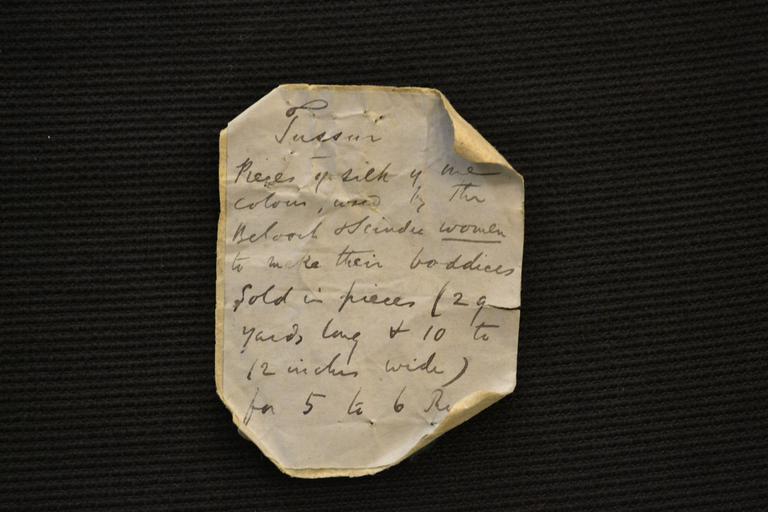 Tussur
Pieces of silk of one
colour, used by the
Belooch & Scindee women
to make their boddices
Sold in pieces (2
yards long & 10 to
12 inches wide)
for 5 to 6 Rs